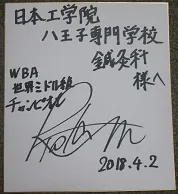 日本工学院
八王子専門学校
鍼灸科
様へ
WBA
世界ミドル級
チャンピオン
2018.4.2